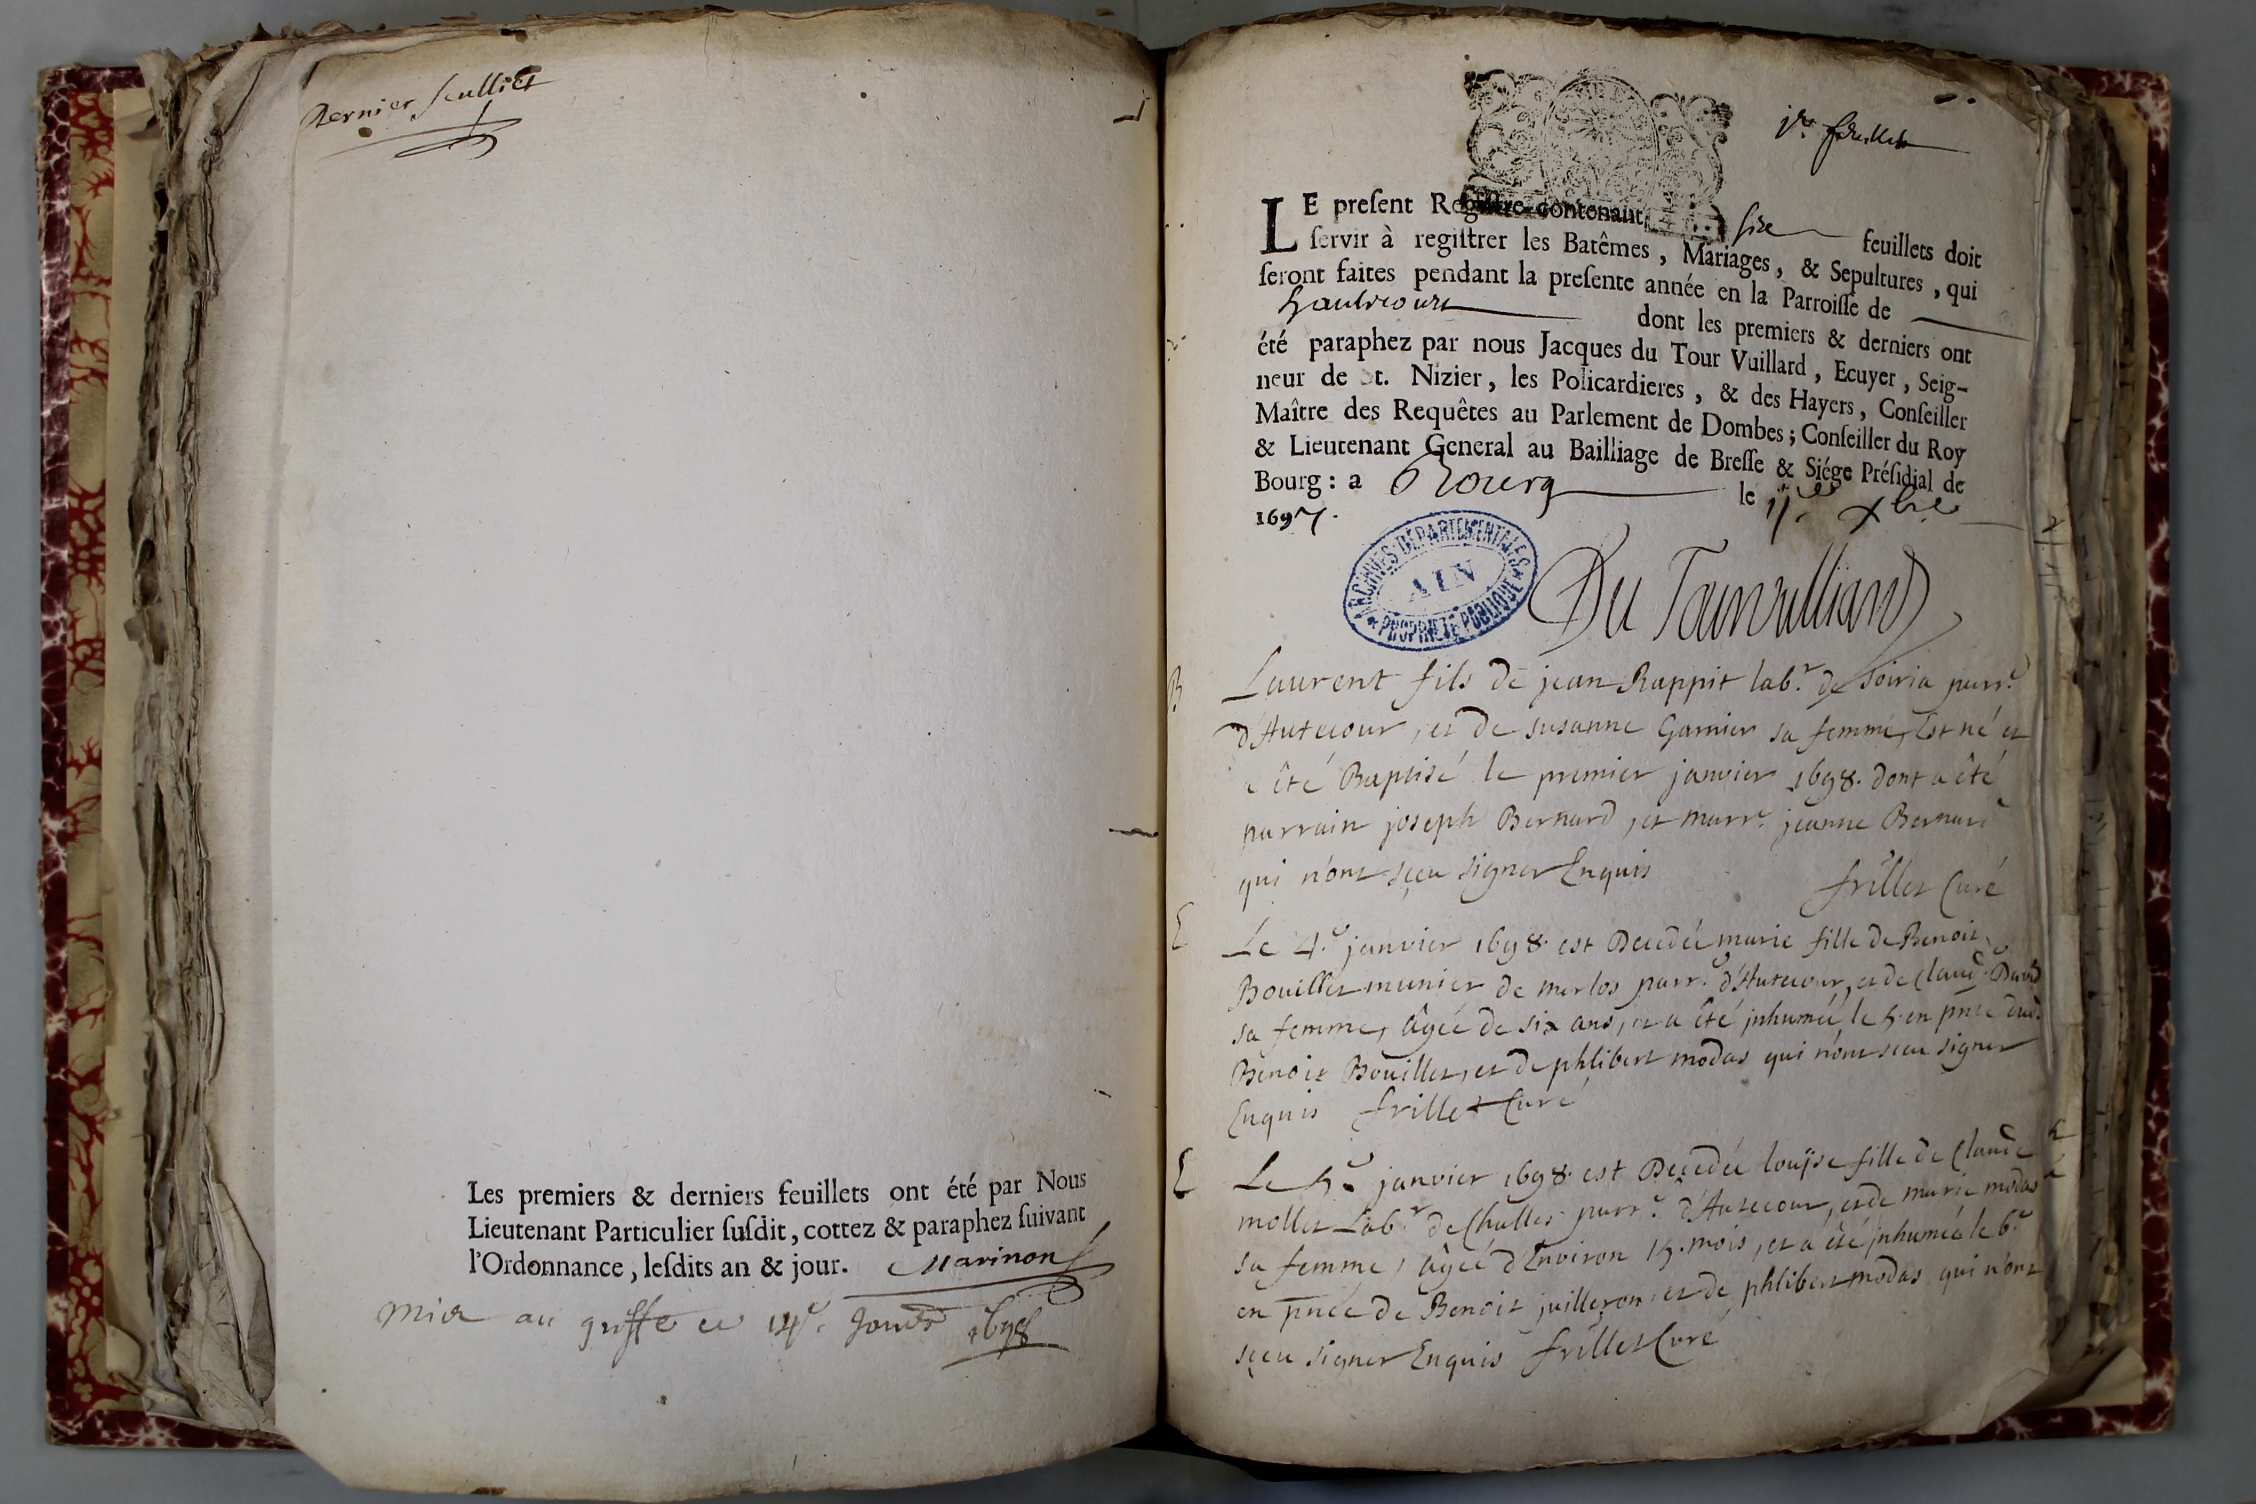 Dernier feulliet
Les premiers & derniers feuillets ont été par Nous
Lieutenant Particulier ſuſdit, cottez & paraphez ſuivant
l'Ordonnance, leſdits an & jour. Marinon
mis au greffe ce 14e. 1698
1er feuillet
LE preſent Regiſtre contenant ſix feuillets doit
ſervir à regiſtrer les Batêmes, Mariages, & Sepultures, qui
ſeront faites pendant la preſente année en la Parroiſſe de
hautecourt dont les premiers & derniers ont
été paraphez par nous Jacques du Tour Vuillard, Ecuyer, Seig-
neur de St. Nizier, les Policardieres, & des Hayers, Conſeiller
Maître des Requêtes au Parlement de Dombes; Conſeiller du Roy
& Lieutenant General au Bailliage de Breſſe & Siége Préſidial de
Bourg: a Bourg le xbre
1697.
ARCHIVES DÉPARTEMENTALES
AIN
PROPRIÉTÉ PUBLIQUE
Du Tourvulliard
B
Laurent fils de jean Rappit labr. de Soiria parre.
d'Autecour, et de susanne Garnier sa femme, Est né et
a été Baptisé le premier janvier 1698. dont a été
parrain joseph Bernard, et marre. jeanne Bernard
qui n'ont sçeu signer Enquis frillet Curé
E
Le 4.e janvier 1698. est Decedée marie fille de Benoit
Bouillet munier de merlos parr.e d'Autecour, et de Claud.e David
sa femme, âgée de six ans, et a été jnhumée le 5. en pnce dud.
Benoit Bouillet, et de phlibert modas qui n'ont sceu signer
Enquis frillet Curé
E
Le 5.e janvier 1698. est Decedée louyse fille de Claude
mollet Labr. de Challes parr.e d'Autecour, et de marie modas
sa femme, âgée d'Environ 15. mois, et a été jnhumée le 6.e
en pnce de Benoit juilleron et de phlibert modas qui n'ont
sçeu signer Enquis frillet Curé